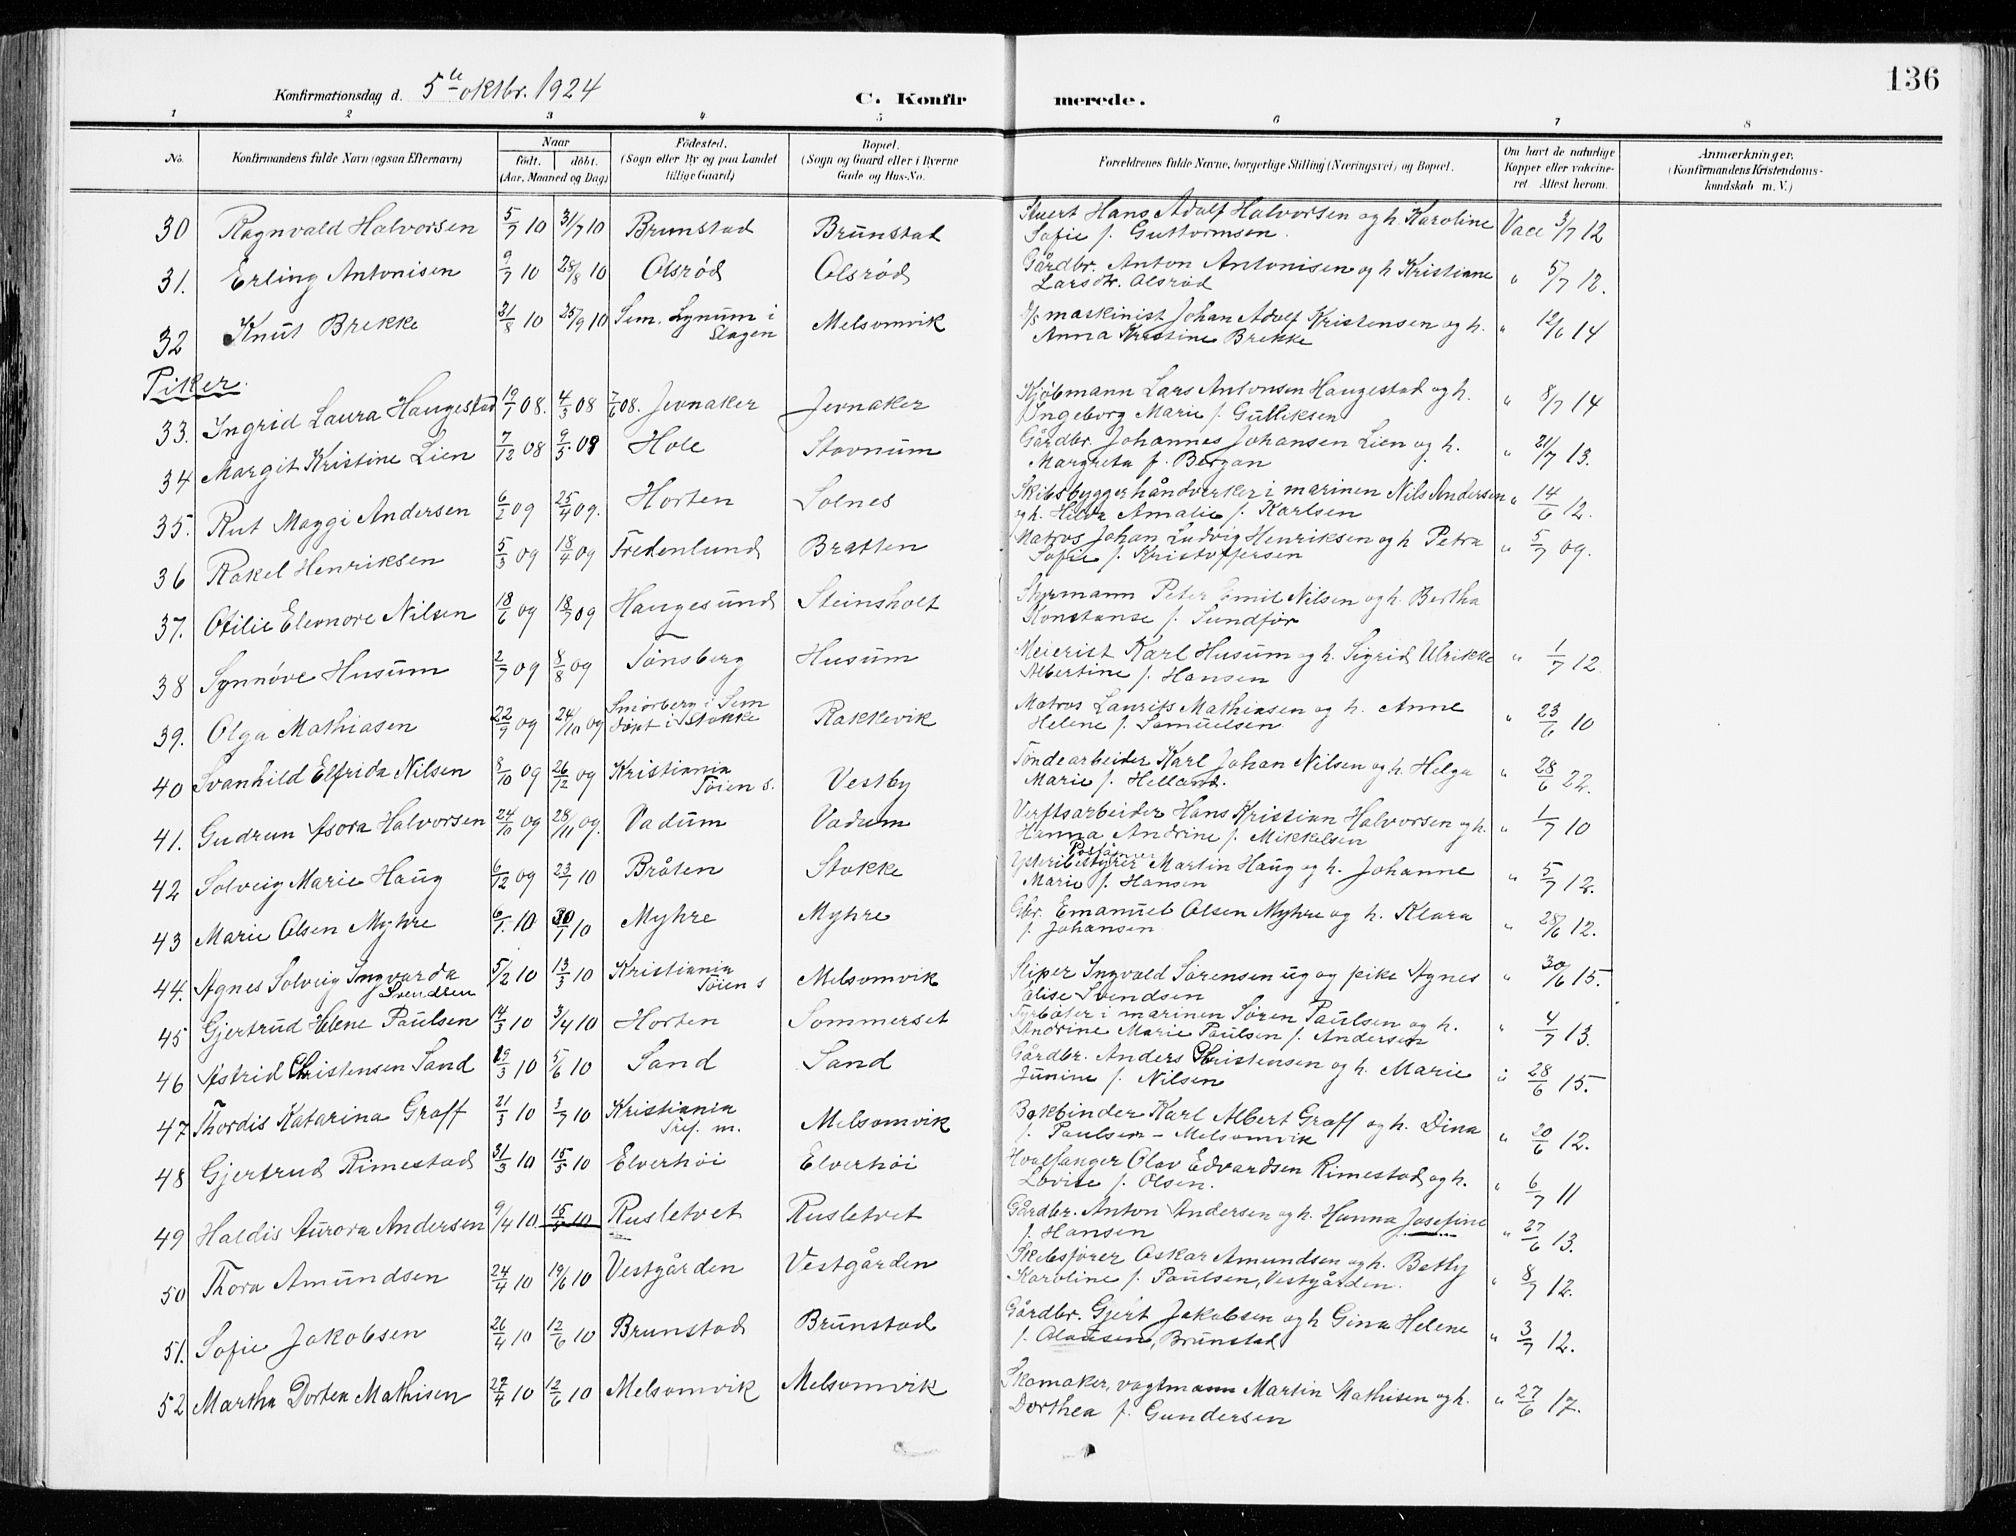 136
Konfirmationsdag d. 5te oktbr. 1924
C. Konfirmerede.
1 2 3 4 5 6 7 8
No. Konfirmandens fulde Navn (ogsaa Efternavn) Naar født. døbt. (Aar, Maaned og Dag) Födested. (Sogn eller By og paa Landet tillige Gaard) Bopæl. (Sogn og Gaard eller i Byerne Gade og Hus-No. Forældrenes fulde Navne, borgerlige Stilling (Næringsvei) og Bopæl. Om havt de naturlige Kopper eller vakcineret Attest herom. Anmærkninger. (Konfirmandens Kristendomskundskab m. V.)
30 Ragnvald Halvorsen 5/7 10 31/7 10 Brunstad Brunstad Stuert Hans Adolf Halvorsen og h. Karoline Sofie f. Guttormsen. Vacc 3/7 12
31. Erling Antonisen 9/7 10 28/8 10 Olsrød Olsrød Gårdbr. Anton Antonisen og h Kristiane Larsdtr. Olsrød " 5/7 12.
32 Knut Brekke 31/8 10 25/9 10 Sem. Lynum i Slagen Melsomvik maskinist Johan Adolf Kristensen og h. Anna Kristine Brekke " 12/6 14
Piker.
33. Ingrid Laura Haugestad 19/1 08. 4/3 08 7/6 08. Jevnaker Jevnaker Kjøbmann Lars Antonsen Haugestad og h. Ingeborg Marie f. Gulliksen " 8/7 14
34 Margit Kristine Lien 7/12 08 9/5 09 Hole Stavnum Gårdbr. Johannes Johansen Lien og h. Margreta f. Bergan " 21/7 13.
35. Rut Maggi Andersen 6/2 09 25/4 09. Horten Solnes Skibsbyggerhåndverker i marinen Nils Andersen og h. Hilda Amalie f. Karlsen " 14/6 12.
36 Rakel Henriksen 5/3 09 18/4 09 Fredenlund Bratten Matros Johan Ludvig Henriksen og h Petra Sofie f. Kristoffersen " 5/7 09.
37. Otilie Eleonore Nilsen 18/6 09 18/7 09 Haugesund Steinsholt Styrmann Peter Emil Nilsen og h. Bertha Konstanse f. Sundfør
38 Synnøve Husum 2/7 09 8/8 09 Tønsberg Husum Meierist Karl Husum og h. Sigrid Ulrikke Albertine f. Hansen " 1/7 12
39. Olga Mathiasen 22/9 09 24/10 09 Smørberg i Sem døpt i Stokke Rakkevik Matros Laurits Mathiasen og h. Anne Helene f. Samuelsen " 23/6 10
40 Svanhild Elfrida Nilsen 8/10 09 26/12 09 Kristiania Tøien s. Vestby Tøndearbeider Karl Johan Nilsen og h. Helga Marie f. Helland. " 28/6 22.
41. Gudrun Asora Halvorsen 24/10 09 28/11 09. Vadum Vadum Verftsarbeider Hans Kristian Halvorsen og h. Hanna Andrine f. Mikkelsen " 1/7 10
42 Solveig Marie Haug 6/12 09 23/1 10 Bråten Stokke Martin Haug og h. Johanne Marie f. Hansen " 5/7 12.
43 Marie Olsen Myhre 6/1. 10 30/1 10 Myhre Myhre Gbr. Emanuel Olsen Myhre og h. Klara f. Johansen " 28/6 12.
44. Agnes Solveig Ingvarda Svendsen 5/2 10 13/3 10 Kristiania Tøien s Melsomvik Skiper Ingvald Sørensen ug og pike Agnes Elise Svendsen " 30/6 15.
45 Gjertrud Helene Paulsen 14/3 10 3/4 10 Horten Sommerset Fyrbøter i marinen Søren Paulsen og h. Andrine Marie Paulsen f. Andersen " 4/7 13.
46 Astrid Christensen Sand 19/3 10 5/6 10 Sand Sand Gårdbr. Anders Christensen og h. Marie Junine f. Nilsen " 28/6 15.
47 Thordis Katarina Graff 21/3 10 3/7 10 Kristiania Tref. m. Melsomvik Bokbinder Karl Albert Graff og h. Dina f. Paulsen – Melsomvik " 20/6 12.
48 Gjertrud Rimestad 31/3 10 15/5 10 Elverhøi Elverhøi Hvalfanger Olav Edvardsen Rimestad og h. Lovise f. Olsen. " 6/7 11
49 Haldis Aurora Andersen 9/4 10 15/5 10 Rusletvet Rusletvet Gårdbr. Anton Andersen og h. Hanna Josefine f. Hansen " 27/6 13.
50 Thora Amundsen 24/4 10 19/6 10 Vestgården Vestgården Skibsfører Oskar Amundsen og h. Betty Karoline f. Paulsen, Vestgården. " 8/7 12.
51. Sofie Jakobsen 26/4 10 12/6 10 Brunstad Brunstad Gårdbr. Gjert Jakobsen og h Gina Helene f. Olausen, Brunstad " 3/7 12.
52 Martha Dorthea Mathisen 27/4 10 12/6 10 Melsomvik Melsomvik Skomaker, vagtmann Martin Mathisen og h. Dorthea f. Gundersen " 27/6 17.